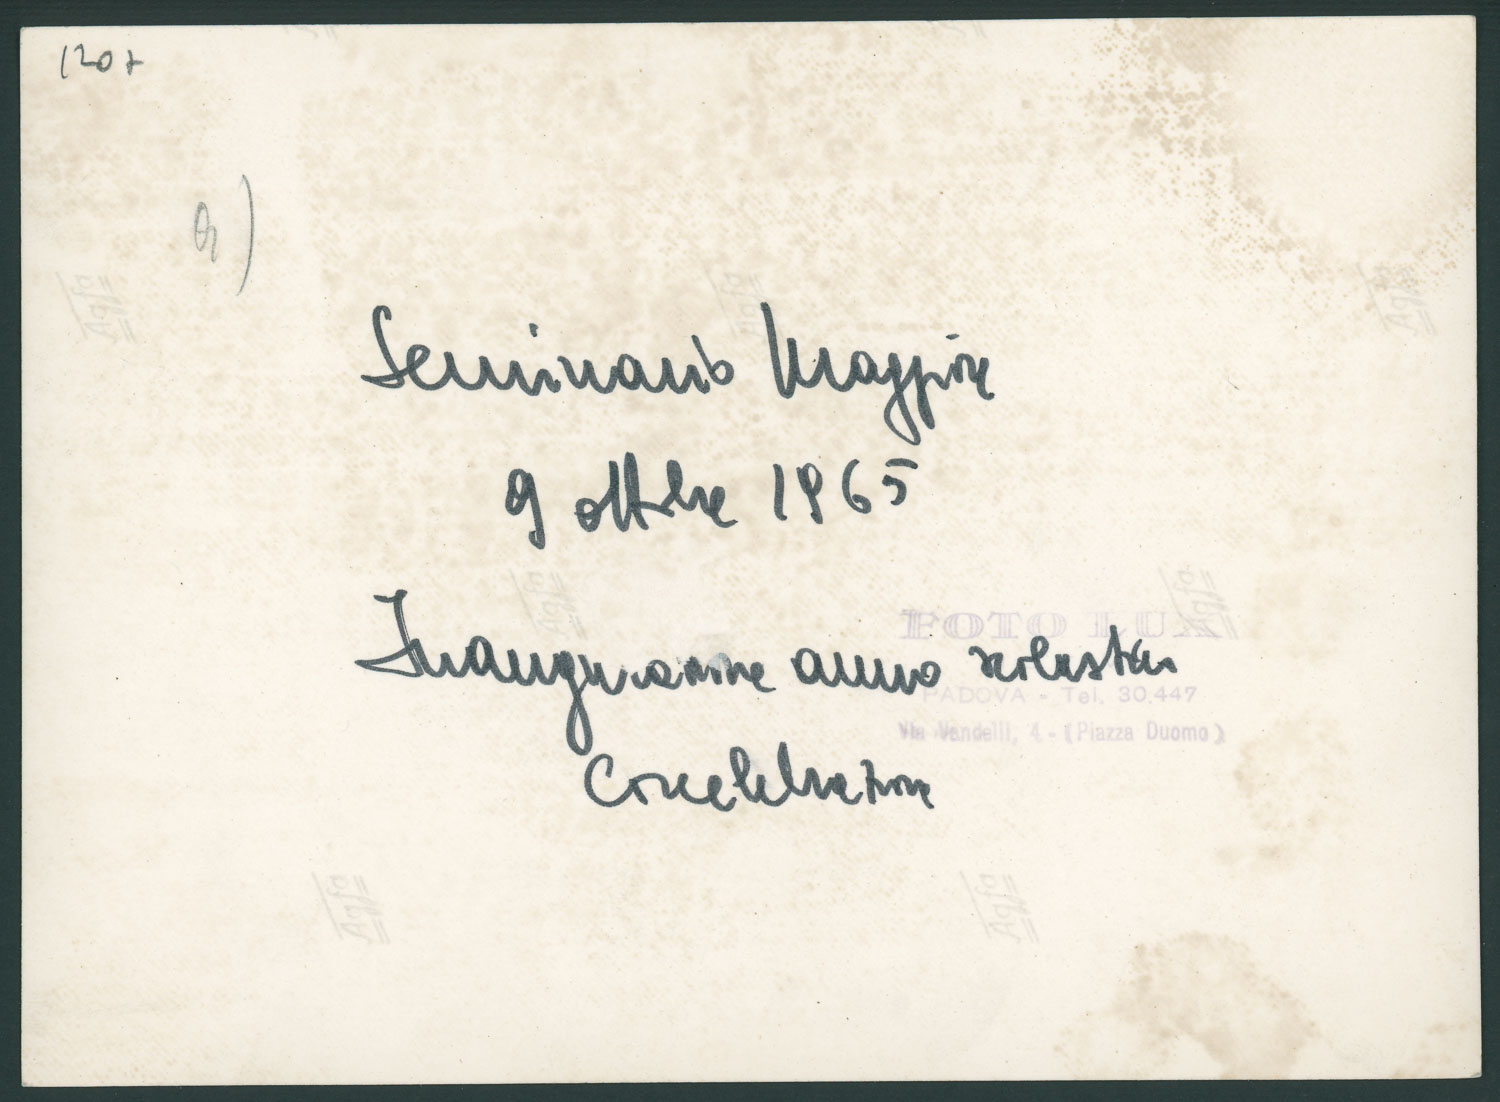 Seminario Maggiore
9 ottobre 1965
FOTO LUX
Inaugurazione anno scolastico
PADOVA - Tel. 30.447
Via Vandelli, 4 - (Piazza Duomo)
Concelebrazione
Agfa
Agfa
Agfa
Agfa
Agfa
Agfa
Agfa